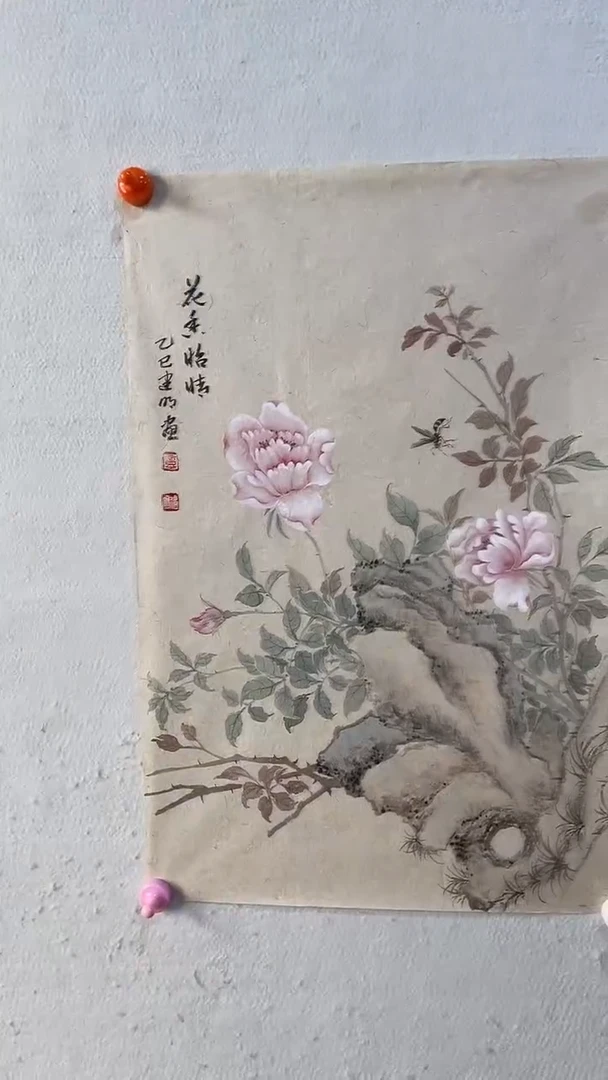 花香怡情
乙巳建明画